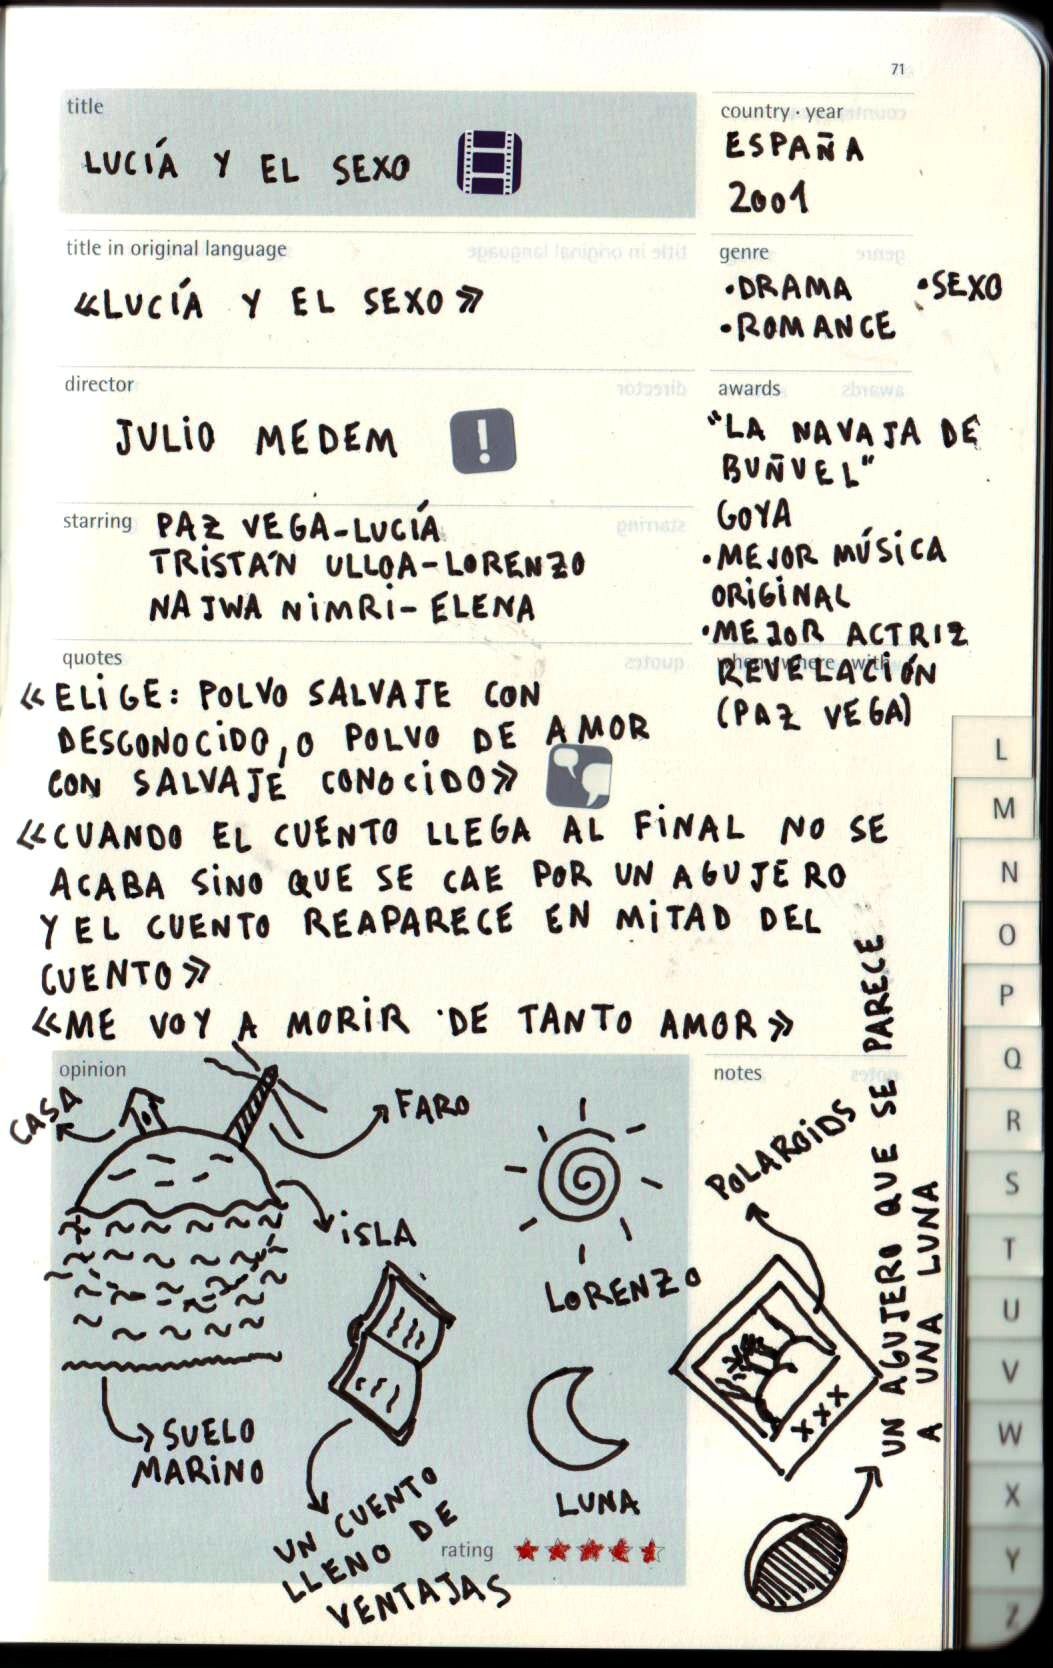 71
title
LUCÍA Y EL SEXO
country · year
ESPAÑA
2001
title in original language
«LUCÍA Y EL SEXO»
genre
•DRAMA •SEXO
•ROMANCE
director
JULIO MEDEM
!
awards
"LA NAVAJA DE
BUÑUEL"
GOYA
•MEJOR MÚSICA
ORIGINAL
•MEJOR ACTRIZ
REVELACIÓN
(PAZ VEGA)
starring PAZ VEGA-LUCÍA
TRISTÁN ULLOA-LORENZO
NAJWA NIMRI-ELENA
when · where · with
quotes
«ELIGE: POLVO SALVAJE CON
DESCONOCIDO, O POLVO DE AMOR
CON SALVAJE CONOCIDO»
«CUANDO EL CUENTO LLEGA AL FINAL NO SE
ACABA SINO QUE SE CAE POR UN AGUJERO
Y EL CUENTO REAPARECE EN MITAD DEL
CUENTO»
«ME VOY A MORIR DE TANTO AMOR»
opinion
CASA
FARO
ISLA
LORENZO
SUELO
MARINO
LUNA
UN CUENTO
LLENO DE
VENTAJAS
rating
notes
POLAROIDS
XXX
UN AGUJERO QUE SE PARECE
A UNA LUNA
L
M
N
O
P
Q
R
S
T
U
V
W
X
Y
Z